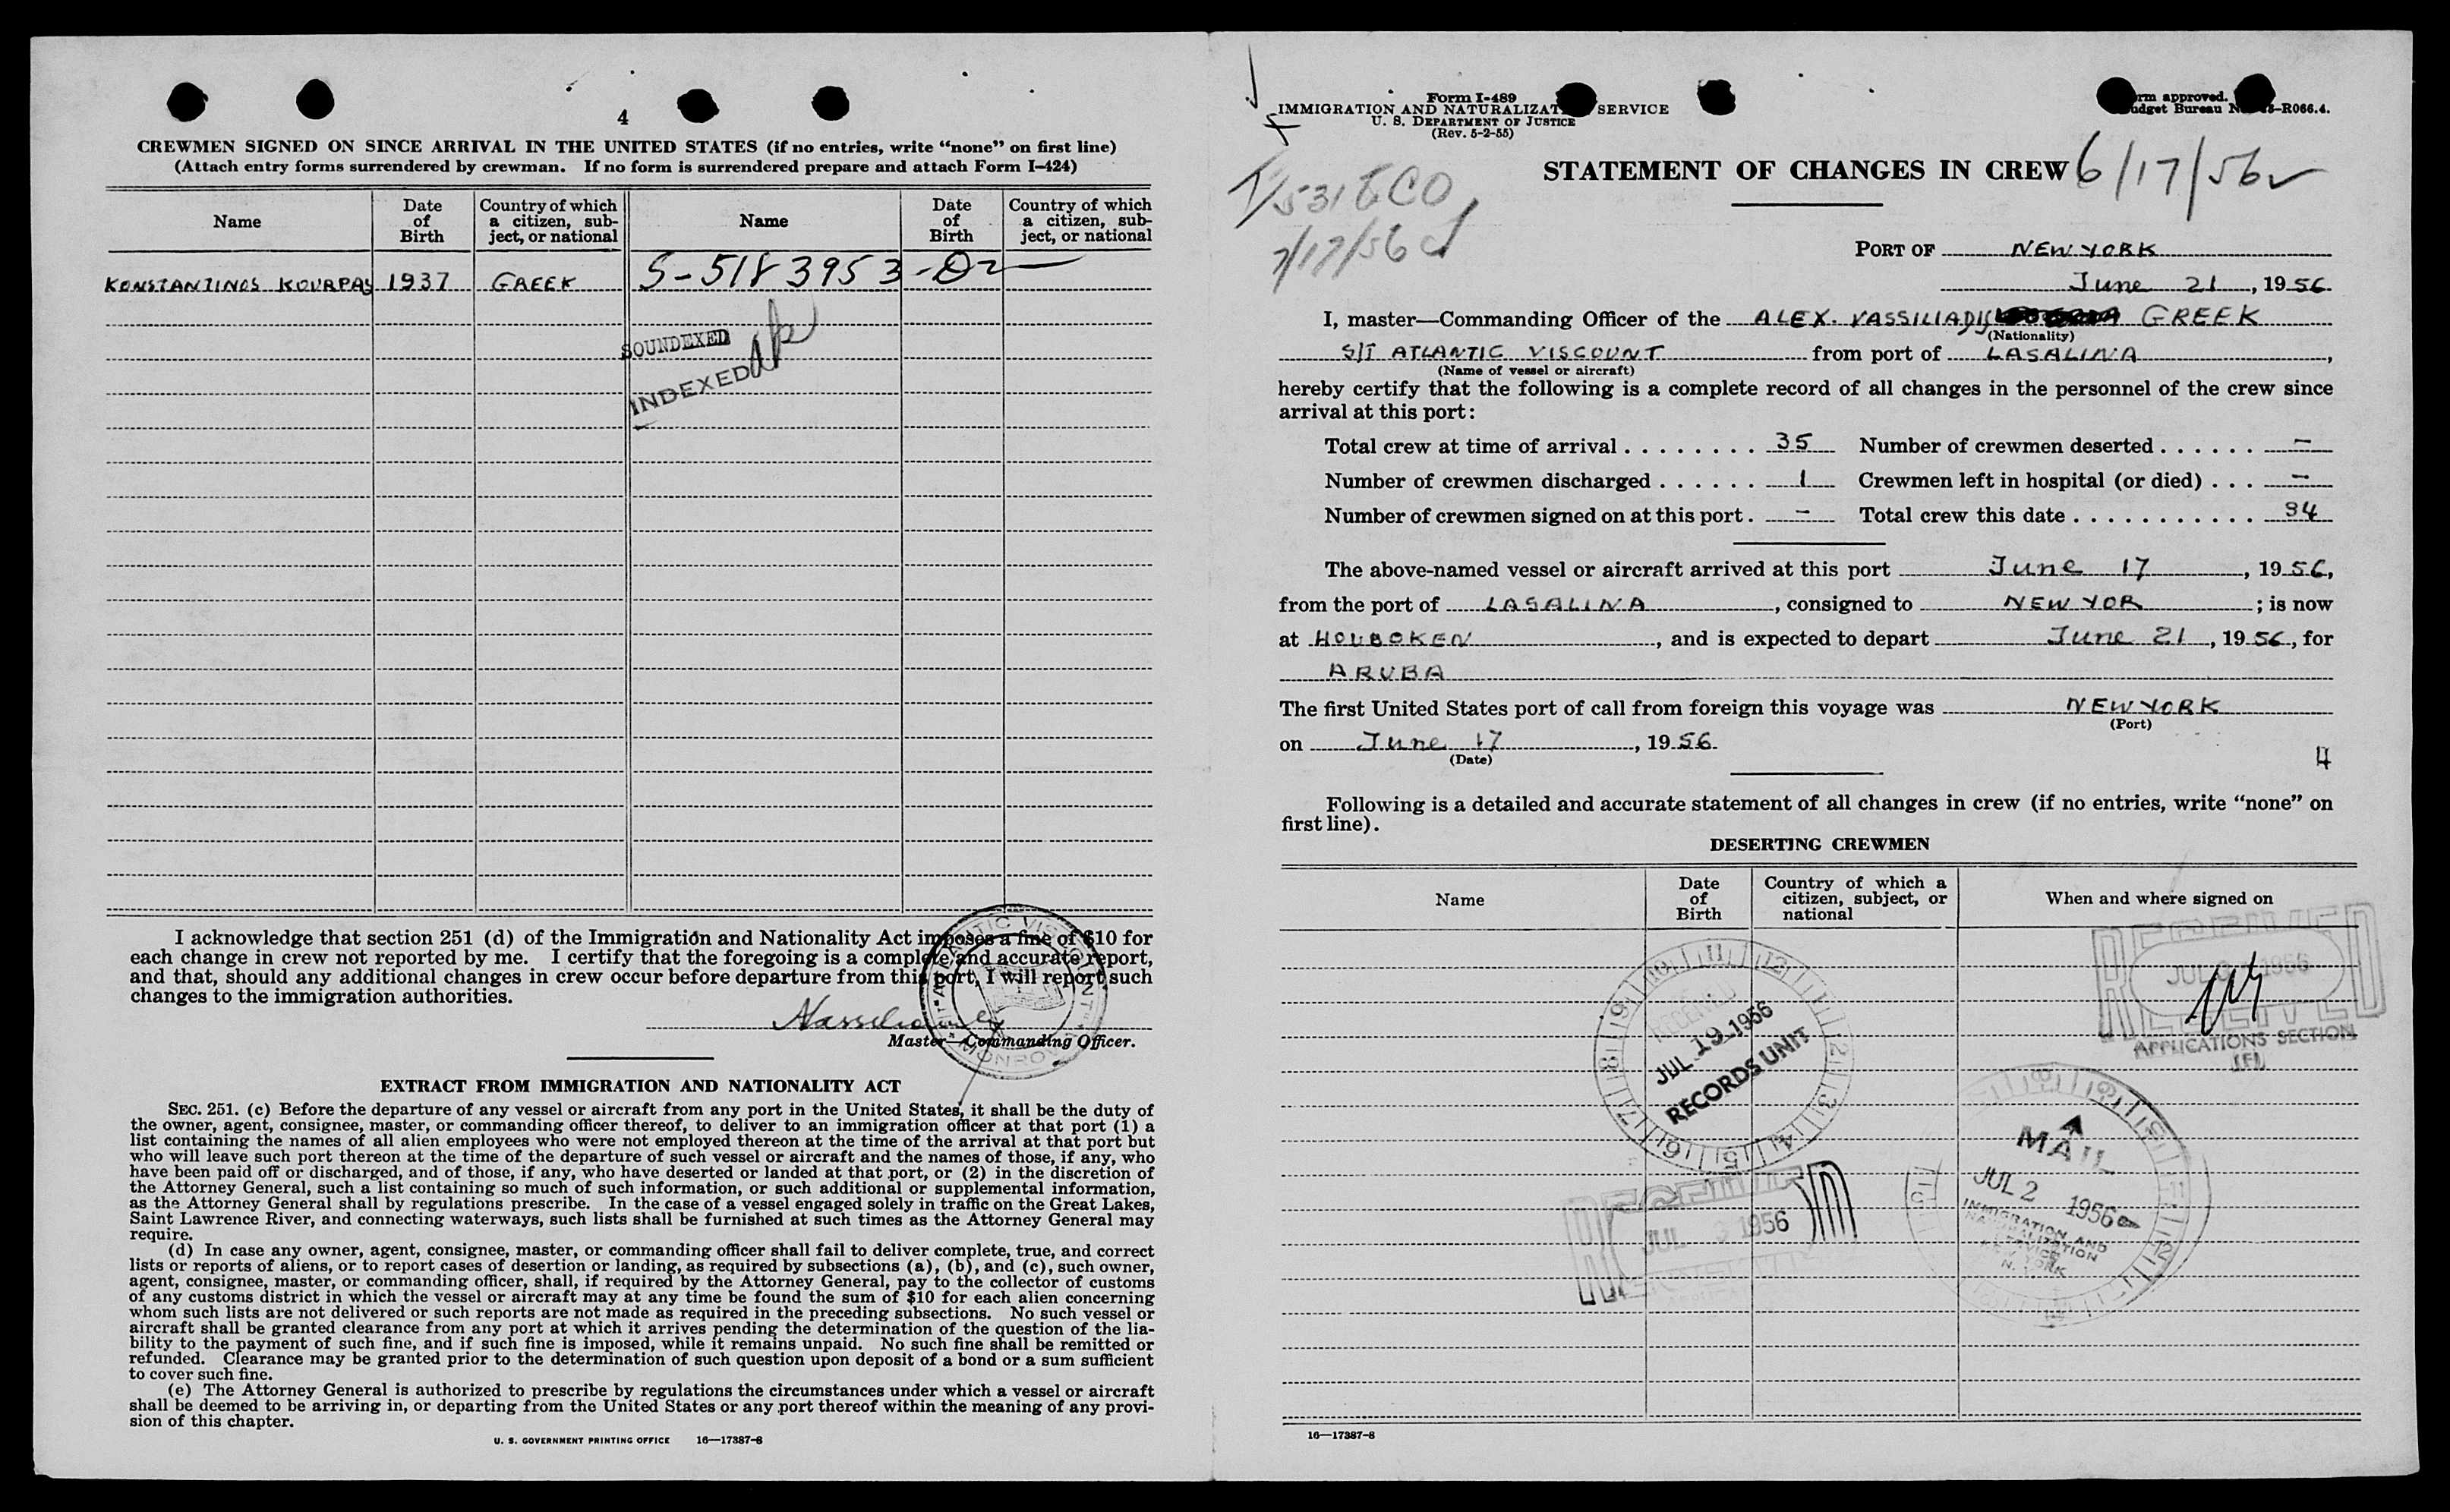 4
CREWMEN SIGNED ON SINCE ARRIVAL IN THE UNITED STATES (if no entries, write “none” on first line)
(Attach entry forms surrendered by crewman. If no form is surrendered prepare and attach Form I–424)
Name Date of Birth Country of which a citizen, subject, or national Name Date of Birth Country of which a citizen, subject, or national
KONSTANTINOS KOURPAS 1937 GREEK S-5183953
SOUNDEXED
INDEXED
I acknowledge that section 251 (d) of the Immigration and Nationality Act imposes a fine of $10 for
each change in crew not reported by me. I certify that the foregoing is a complete and accurate report,
and that, should any additional changes in crew occur before departure from this port, I will report such
changes to the immigration authorities.
Master—Commanding Officer.
ATLANTIC VISCOUNT
MONROVIA
EXTRACT FROM IMMIGRATION AND NATIONALITY ACT
SEC. 251. (c) Before the departure of any vessel or aircraft from any port in the United States, it shall be the duty of
the owner, agent, consignee, master, or commanding officer thereof, to deliver to an immigration officer at that port (1) a
list containing the names of all alien employees who were not employed thereon at the time of the arrival at that port but
who will leave such port thereon at the time of the departure of such vessel or aircraft and the names of those, if any, who
have been paid off or discharged, and of those, if any, who have deserted or landed at that port, or (2) in the discretion of
the Attorney General, such a list containing so much of such information, or such additional or supplemental information,
as the Attorney General shall by regulations prescribe. In the case of a vessel engaged solely in traffic on the Great Lakes,
Saint Lawrence River, and connecting waterways, such lists shall be furnished at such times as the Attorney General may
require.
(d) In case any owner, agent, consignee, master, or commanding officer shall fail to deliver complete, true, and correct
lists or reports of aliens, or to report cases of desertion or landing, as required by subsections (a), (b), and (c), such owner,
agent, consignee, master, or commanding officer, shall, if required by the Attorney General, pay to the collector of customs
of any customs district in which the vessel or aircraft may at any time be found the sum of $10 for each alien concerning
whom such lists are not delivered or such reports are not made as required in the preceding subsections. No such vessel or
aircraft shall be granted clearance from any port at which it arrives pending the determination of the question of the lia-
bility to the payment of such fine, and if such fine is imposed, while it remains unpaid. No such fine shall be remitted or
refunded. Clearance may be granted prior to the determination of such question upon deposit of a bond or a sum sufficient
to cover such fine.
(e) The Attorney General is authorized to prescribe by regulations the circumstances under which a vessel or aircraft
shall be deemed to be arriving in, or departing from the United States or any port thereof within the meaning of any provi-
sion of this chapter.
U. S. GOVERNMENT PRINTING OFFICE 16—17387-8
Form I-489
IMMIGRATION AND SERVICE
U. S. DEPARTMENT OF JUSTICE
(Rev. 5-2-55)
approved.
Bureau R066.4.
STATEMENT OF CHANGES IN CREW 6/17/56
7/17/56
PORT OF NEW YORK
June 21, 1956
I, master—Commanding Officer of the ALEX. VASSILIADIS GREEK
(Nationality)
S/T ATLANTIC VISCOUNT from port of LASALINA,
(Name of vessel or aircraft)
hereby certify that the following is a complete record of all changes in the personnel of the crew since
arrival at this port:
Total crew at time of arrival 35 Number of crewmen deserted –
Number of crewmen discharged 1 Crewmen left in hospital (or died) –
Number of crewmen signed on at this port. – Total crew this date 34
The above-named vessel or aircraft arrived at this port June 17, 1956,
from the port of LASALINA, consigned to NEW YOR; is now
at HOUBOKEN, and is expected to depart June 21, 1956, for
ARUBA
The first United States port of call from foreign this voyage was NEW YORK
(Port)
on June 17, 1956.
(Date)
4
Following is a detailed and accurate statement of all changes in crew (if no entries, write “none” on
first line).
DESERTING CREWMEN
Name Date of Birth Country of which a citizen, subject, or national When and where signed on
RECEIVED
JUL 1956
RECEIVED
APPLICATIONS SECTION
RECEIVED
JUL 19 1956
RECORDS UNIT
MAIL
JUL 2 1956
IMMIGRATION AND
NATURALIZATION
SERVICE
RECEIVED
JUL 1956
16—17387-8